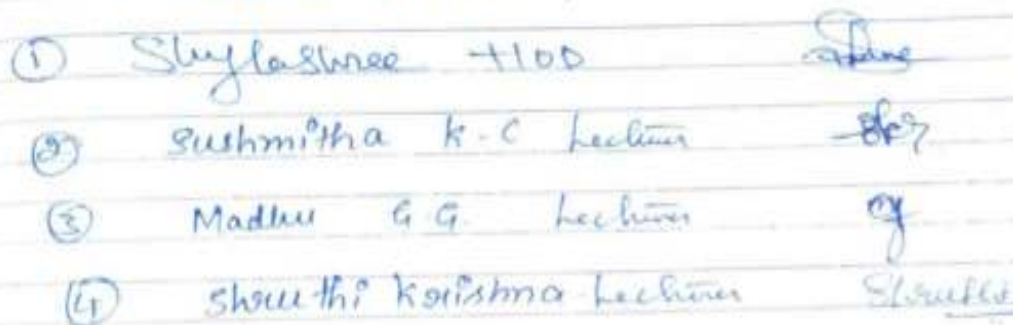 ① Shylashree HOD
② Sushmitha K.C Lecturer
③ Madhu G G. Lecturer
④ Shruthi Krishna Lecturer Shruthi